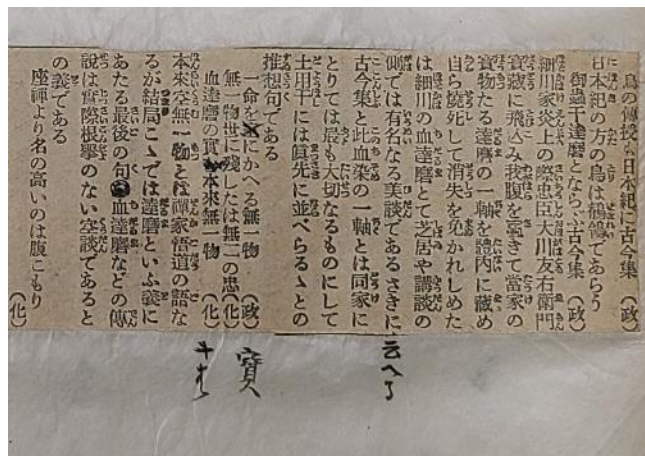 鳥の傳授よ日本紀に古今集　（政）
日本紀の方の鳥は鶺鴒であらう
御蟲干達磨とならぶ古今集　（政）
細川家炎上の際忠臣大川友右衛門
寶藏に飛込み我腹を割きて當家の
寳物たる達磨の一軸を體内に藏め
自ら燒死して消失を免かれしめた
は細川の血達磨とて芝居や講談の
側では有名なる美談であるさきに
古今集と此血染の一軸とは同家に
とりては最も大切なるものにして
土用干には眞先に並べらるゝとの
推想句である
一命を にかへる無一物　（政）
無一物世に殘したは無二の忠　（化）
血達磨の實 本來無一物　（化）
本來空無一物とは禪家悟道の語な
るが結局こゝでは達磨といふ義に
あたる最後の句 血達磨などの傳
說は實際根擧のない空談であると
の義である
座禪より名の高いのは腹こもり　（化）
云へる
寳